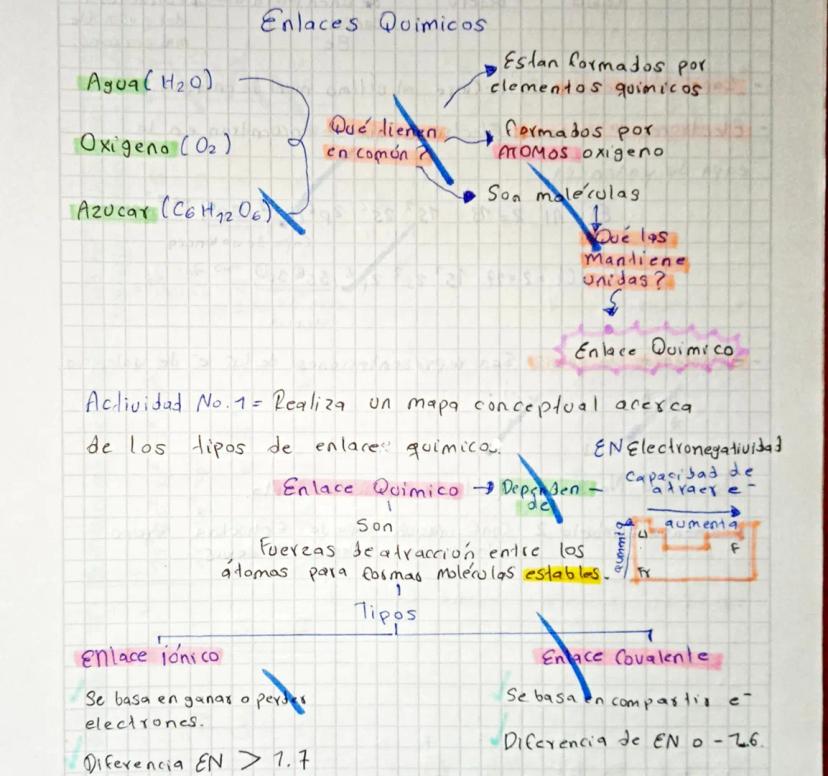 Enlaces Quimicos
Agua (H2O)
Oxigeno (O2)
Azucar (C6H12O6)
Qué tienen
en común?
Estan formados por
elementos quimicos
formados por
ATOMOS oxigeno
Son moléculas
Qué las
mantiene
unidas?
Enlace Quimico
Actividad No. 1 = Realiza un mapa conceptual acerca
de los tipos de enlaces químicos.
EN Electronegatividad
Capacidad de
atraer e-
Enlace Quimico → Dependen
de
aumenta
aumenta
Li
F
Fr
Son
Fuerzas de atracción entre los
átomos para formas moléculas estables.
Tipos
Enlace iónico
Se basa en ganar o perder
electrones.
Diferencia EN > 1.7
Enlace Covalente
Se basa en compartir e-
Diferencia de EN 0 - 1.6.